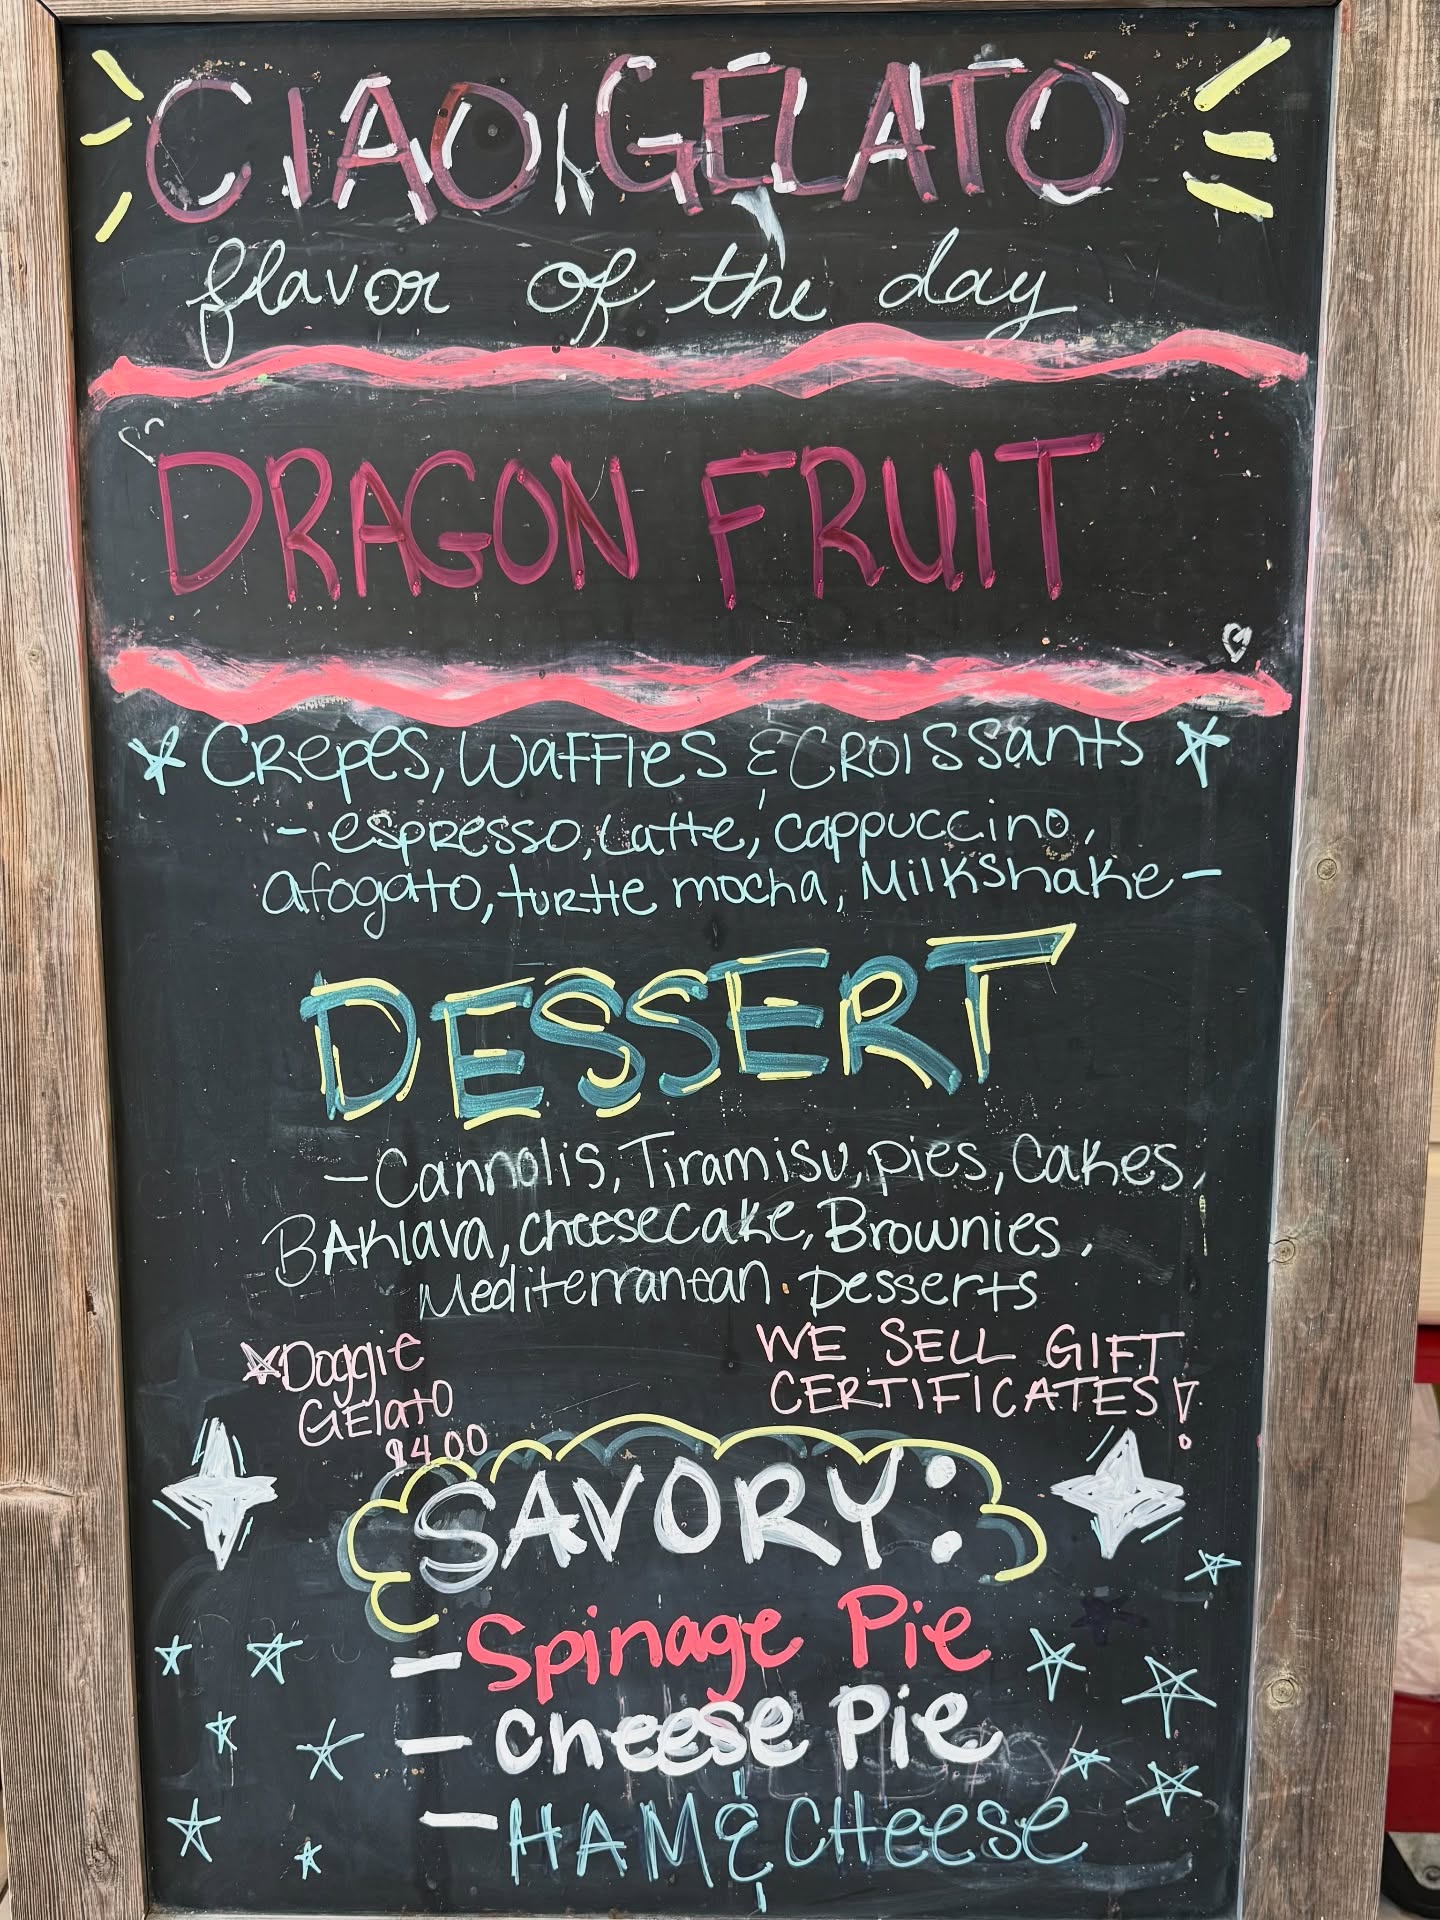 CIAO GELATO
flavor of the day
DRAGON FRUIT
Crepes, Waffles & Croissants
- espresso, Latte, cappuccino,
afogato, turtle mocha, Milkshake -
DESSERT
- Cannolis, Tiramisu, pies, Cakes,
BAKlava, cheesecake, Brownies,
Mediterranean Desserts
Doggie
GElato
$4.00
WE SELL GIFT
CERTIFICATES!
SAVORY:
- Spinage Pie
- Cheese Pie
- HAM & CHeese